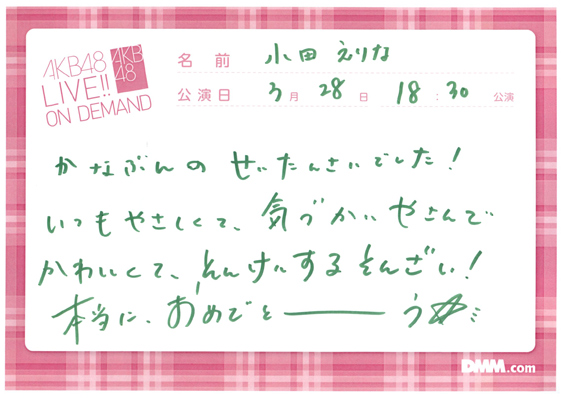 AKB48
LIVE!!
ON DEMAND
AKB
48
名前 小田えりな
公演日 3月28日 18:30 公演
かなぶんの せいたんさいでした!
いつもやさしくて、気づかいやさんで
かわいくて、そんけいするそんざい!
本当に、おめでとーう☆
DMM.com